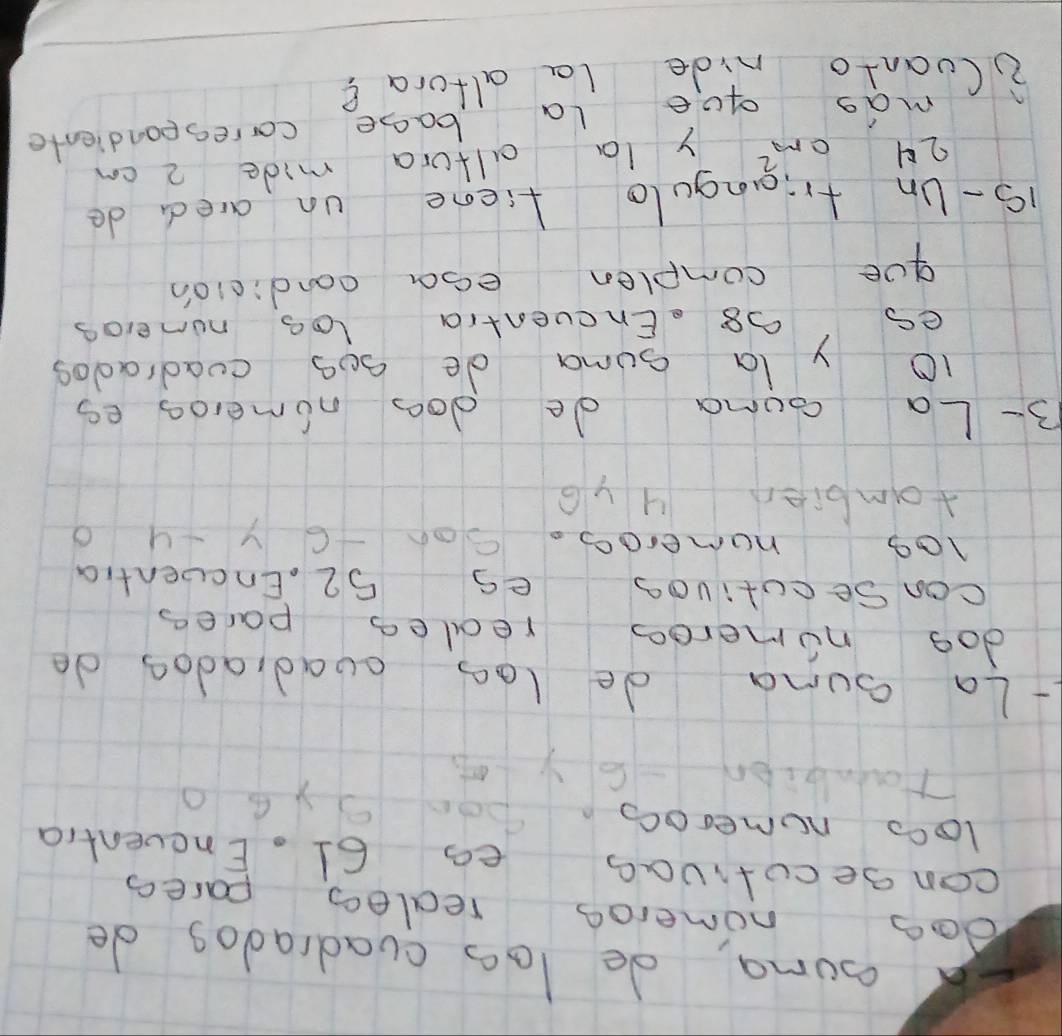 La suma de los cuadrados de
dos numeros reales pares
consecutivos es 61. Encuentra
los numeros. Son 5 y 6 o
Tambien -6 y -5
- La suma de los cuadrados de
dos números reales pares
consecutivos es 52. Encuentra
los numeros. Son -6 y -4 o
tambien 4 y 6
3- La suma de dos números es
10 y la suma de sus cuadrados
es 58. Encuentra los números
que cumplen esa condición
15- Un triangulo tiene un area de
24 cm² y la altura mide 2 cm
más que la base correspondiente
¿Cuanto mide la altura?